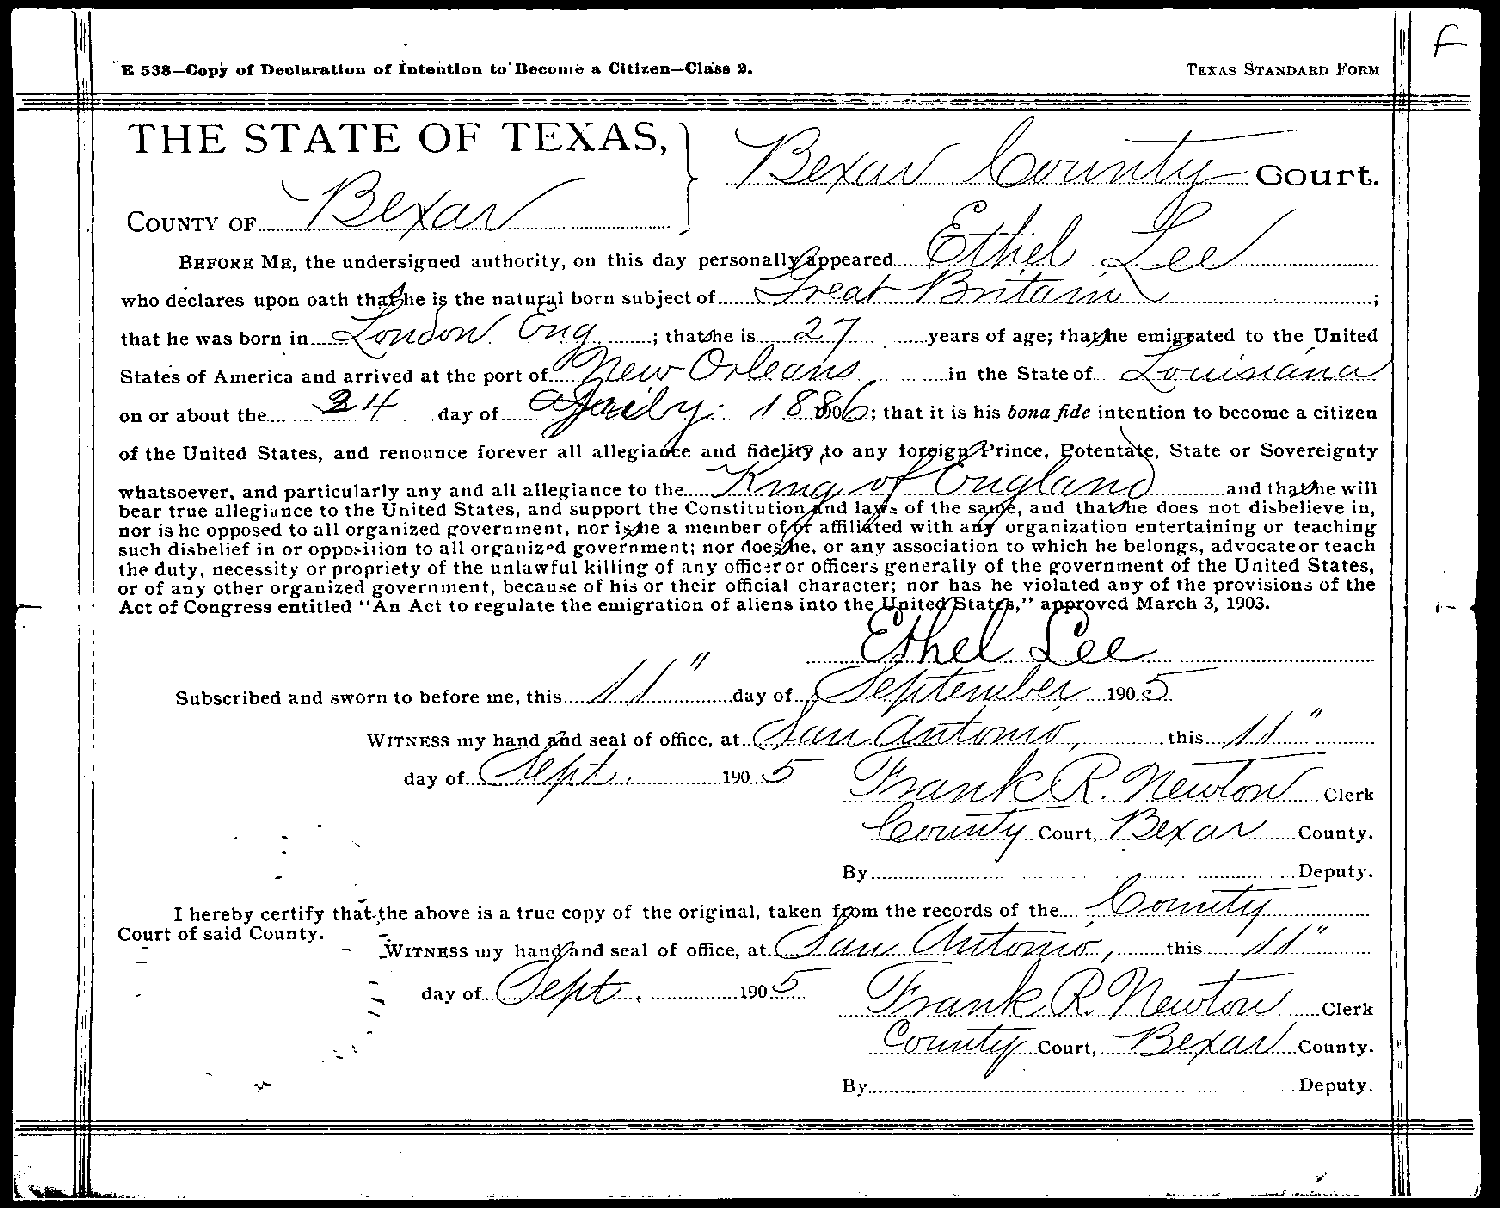 F
E 538—Copy of Declaration of Intention to Become a Citizen—Class 2. TEXAS STANDARD FORM
THE STATE OF TEXAS,
Bexar County Court.
COUNTY OF Bexar
BEFORE ME, the undersigned authority, on this day personally appeared Ethel Lee
who declares upon oath that she is the natural born subject of Great Britain ;
that he was born in London Eng ; that she is 27 years of age; that she emigrated to the United
States of America and arrived at the port of New Orleans in the State of Louisiana
on or about the 24 day of 1886; that it is his bona fide intention to become a citizen
of the United States, and renounce forever all allegiance and fidelity to any foreign Prince, Potentate, State or Sovereignty
whatsoever, and particularly any and all allegiance to the King of England and that she will
bear true allegiance to the United States, and support the Constitution and laws of the same, and that she does not disbelieve in,
nor is he opposed to all organized government, nor is she a member of or affiliated with any organization entertaining or teaching
such disbelief in or opposition to all organized government; nor does she, or any association to which he belongs, advocate or teach
the duty, necessity or propriety of the unlawful killing of any officer or officers generally of the government of the United States,
or of any other organized government, because of his or their official character; nor has he violated any of the provisions of the
Act of Congress entitled "An Act to regulate the emigration of aliens into the United States," approved March 3, 1903.
Ethel Lee
Subscribed and sworn to before me, this 11" day of September 1905
WITNESS my hand and seal of office, at San Antonio, this 11"
day of Sept. 1905 Frank R. Newton Clerk
County Court, Bexar County.
By Deputy.
I hereby certify that the above is a true copy of the original, taken from the records of the County
Court of said County.
WITNESS my hand and seal of office, at San Antonio, this 11"
day of Sept. 1905 Frank R. Newton Clerk
County Court, Bexar County.
By Deputy.